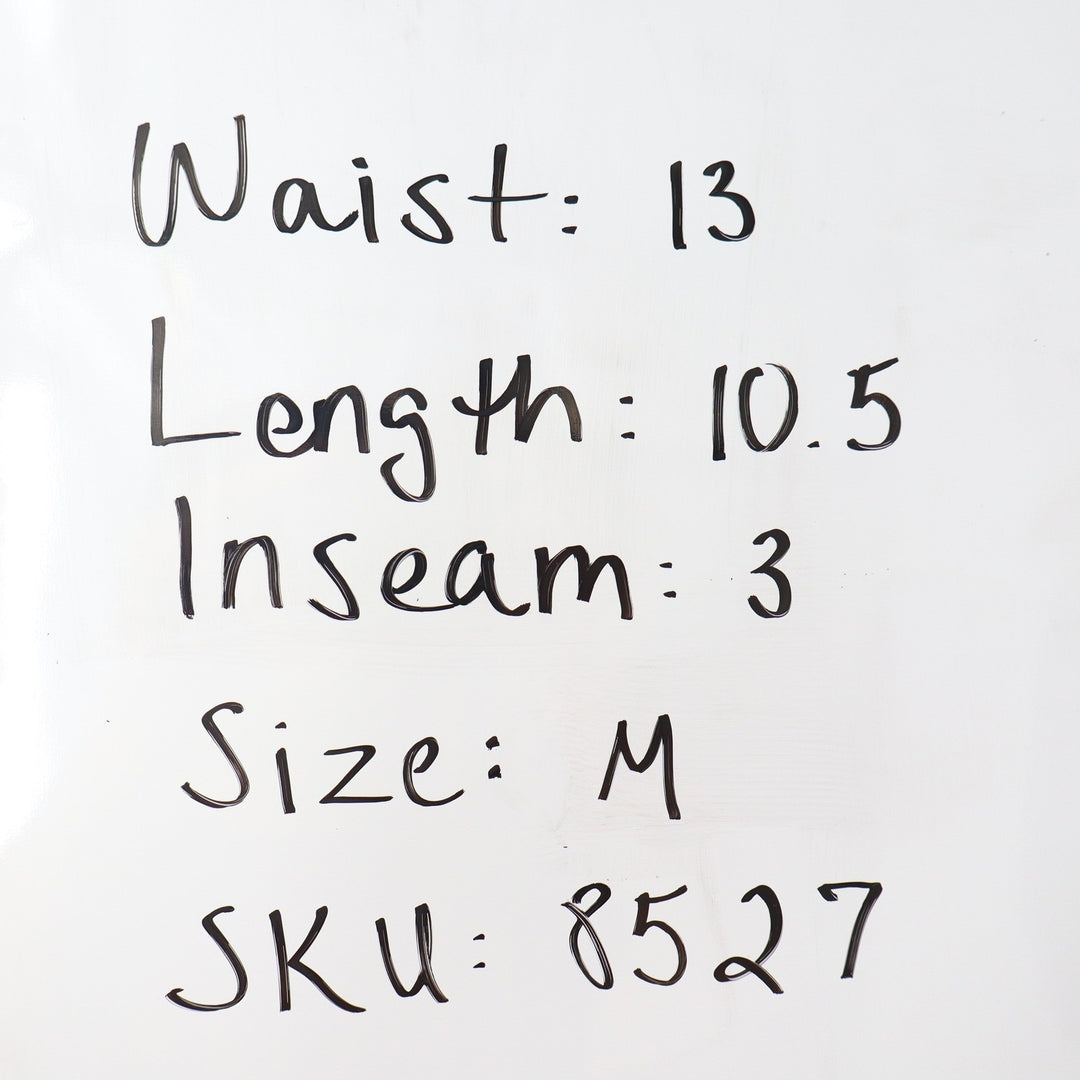 Waist: 13
Length: 10.5
Inseam: 3
Size: M
SKU: 8527